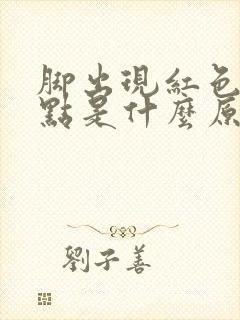 脚出現紅色
點是什麼原
劉子善